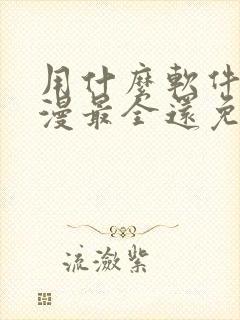 用什麼軟件
漫最全還免
流瀲紫